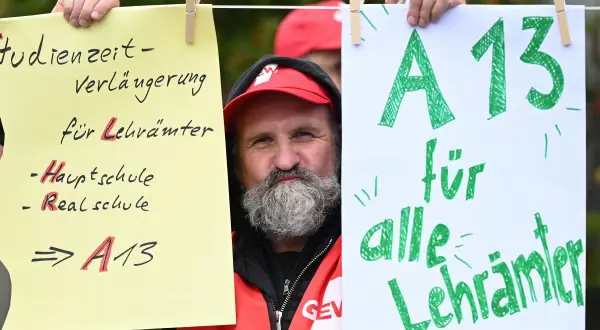 Studienzeit-
verlängerung
für Lehrämter
- Hauptschule
- Realschule
=> A13
A 13
für
alle
Lehrämter
GEW